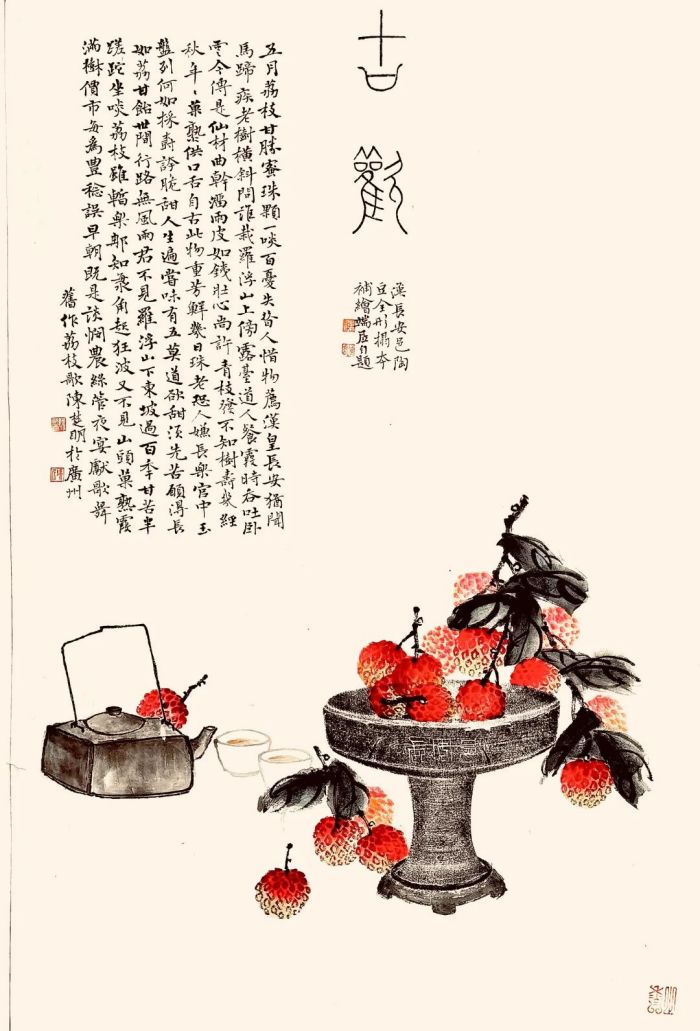 古歡
漢長安邑陶
豆全形搨本
補繪端居自題
五月荔枝甘勝蜜珠顆一啖百憂失昔人惜物薦漢皇長安猶聞
馬蹄疾老樹橫斜問誰栽羅浮山上傍露臺道人餐霞時吞吐卧
雲今傳是仙材曲幹溜雨皮如錢壯心尚許青枝發不知樹壽幾經
秋年〻菓熟供口舌自古此物重芳鮮幾日珠老恐人嫌長樂宮中玉
盤列何如採壽誇脆甜人生遍嘗味有五莫道欲甜須先苦願得長
如荔甘飴世間行路無風雨君不見羅浮山下東坡過百年甘苦半
蹉跎坐啖荔枝雖暫樂那知角起狂波又不見山頭菓熟霞
滿樹價市每為豐稔誤早朝既是談憫農絲管夜宴獻歌舞
舊作荔枝歌陳楚明於廣州